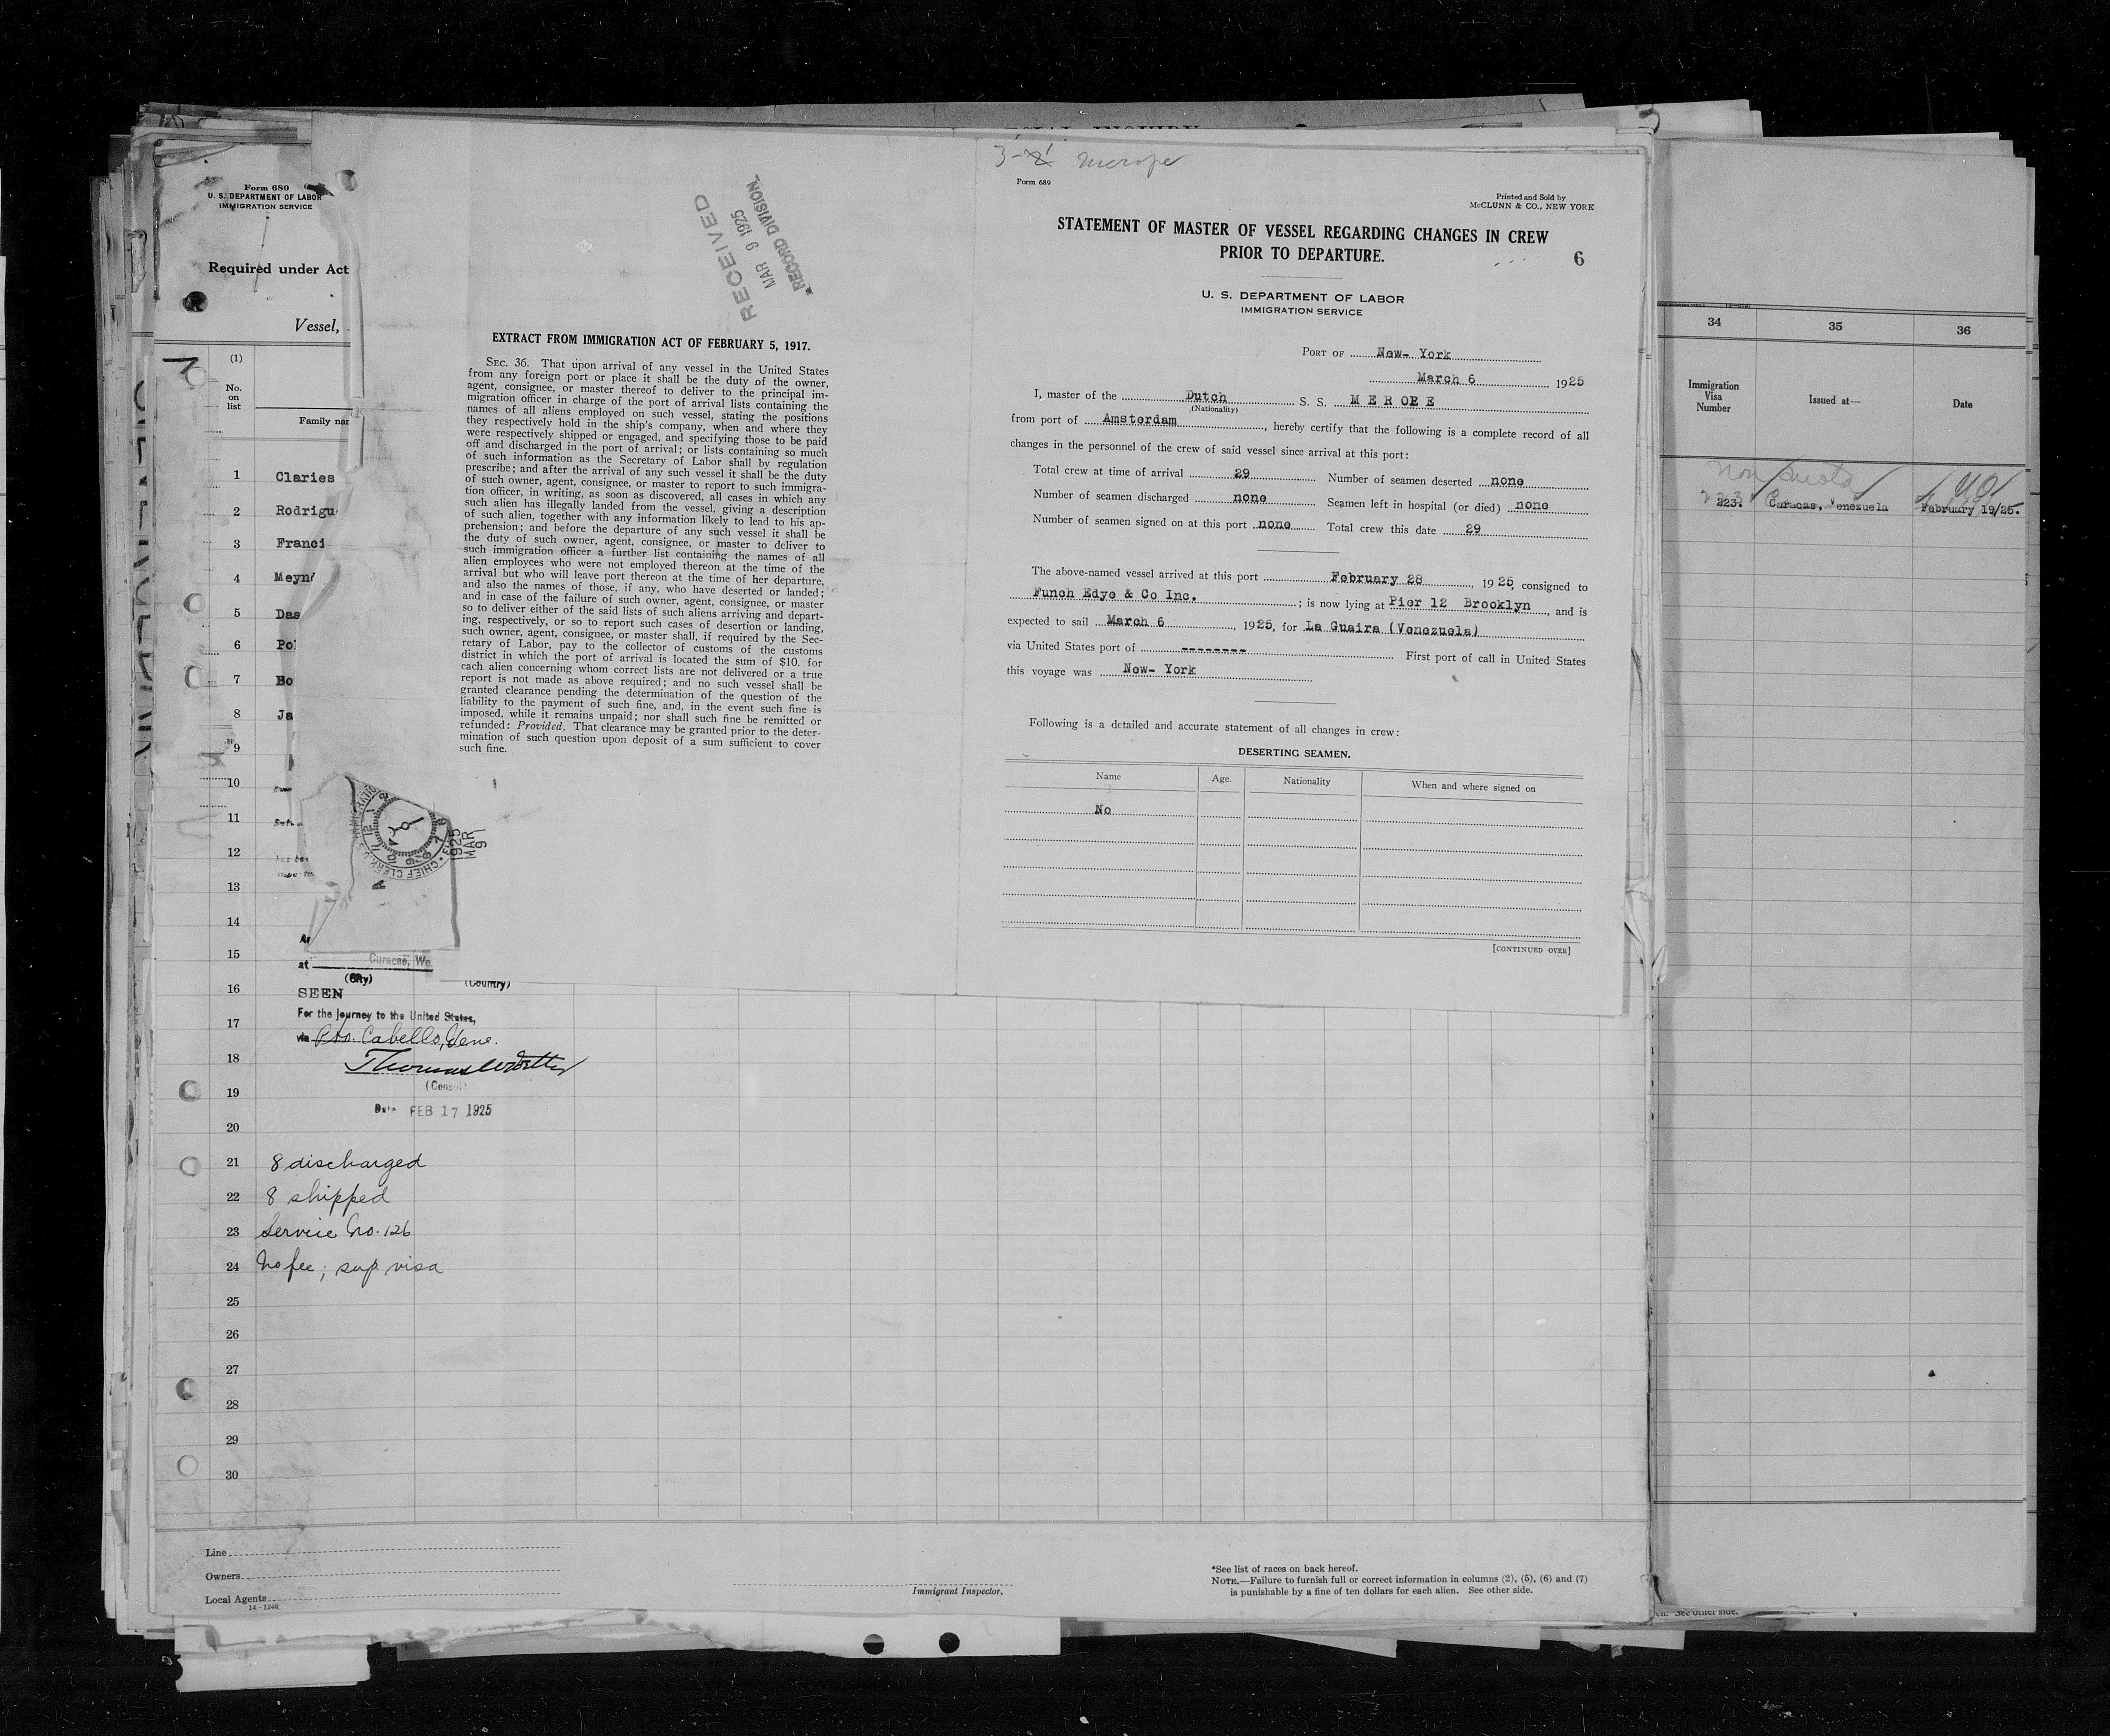 Form 680
U. S. DEPARTMENT OF LABOR
IMMIGRATION SERVICE
Required under Act
Vessel,
(1)
No.
on
list
Family nar
1 Claries
2 Rodrigu
3 Franci
4 Meyn
5 Das
6 Po
7 Bo
8 Ja
9
10
11
12
13
14
15
at Curacao, We.
(City) (Country)
16
SEEN
17 For the journey to the United States,
via Pto. Cabello, Vene.
18
(Consul)
19
Date FEB 17 1925
20
21 8 discharged
22 8 shipped
23 Service No. 126
24 No fee; sup visa
25
26
27
28
29
30
Line
Owners
Local Agents
14-1240
Immigrant Inspector.
*See list of races on back hereof.
NOTE.—Failure to furnish full or correct information in columns (2), (5), (6) and (7)
is punishable by a fine of ten dollars for each alien. See other side.
RECEIVED
MAR 9 1925
RECORD DIVISION.
EXTRACT FROM IMMIGRATION ACT OF FEBRUARY 5, 1917.
SEC. 36. That upon arrival of any vessel in the United States
from any foreign port or place it shall be the duty of the owner,
agent, consignee, or master thereof to deliver to the principal im-
migration officer in charge of the port of arrival lists containing the
names of all aliens employed on such vessel, stating the positions
they respectively hold in the ship's company, when and where they
were respectively shipped or engaged, and specifying those to be paid
off and discharged in the port of arrival; or lists containing so much
of such information as the Secretary of Labor shall by regulation
prescribe; and after the arrival of any such vessel it shall be the duty
of such owner, agent, consignee, or master to report to such immigra-
tion officer, in writing, as soon as discovered, all cases in which any
such alien has illegally landed from the vessel, giving a description
of such alien, together with any information likely to lead to his ap-
prehension; and before the departure of any such vessel it shall be
the duty of such owner, agent, consignee, or master to deliver to
such immigration officer a further list containing the names of all
alien employees who were not employed thereon at the time of the
arrival but who will leave port thereon at the time of her departure,
and also the names of those, if any, who have deserted or landed;
and in case of the failure of such owner, agent, consignee, or master
so to deliver either of the said lists of such aliens arriving and depart-
ing, respectively, or so to report such cases of desertion or landing,
such owner, agent, consignee, or master shall, if required by the Sec-
retary of Labor, pay to the collector of customs of the customs
district in which the port of arrival is located the sum of $10. for
each alien concerning whom correct lists are not delivered or a true
report is not made as above required; and no such vessel shall be
granted clearance pending the determination of the question of the
liability to the payment of such fine, and, in the event such fine is
imposed, while it remains unpaid; nor shall such fine be remitted or
refunded: Provided, That clearance may be granted prior to the deter-
mination of such question upon deposit of a sum sufficient to cover
such fine.
CHIEF CLERK
1925
MAR
9
Merope
Form 689
Printed and Sold by
McCLUNN & CO., NEW YORK
STATEMENT OF MASTER OF VESSEL REGARDING CHANGES IN CREW
PRIOR TO DEPARTURE.
6
U. S. DEPARTMENT OF LABOR
IMMIGRATION SERVICE
PORT OF New- York
March 6 1925
I, master of the Dutch S. S. MEROPE
(Nationality)
from port of Amsterdam, hereby certify that the following is a complete record of all
changes in the personnel of the crew of said vessel since arrival at this port:
Total crew at time of arrival 29 Number of seamen deserted none
Number of seamen discharged none Seamen left in hospital (or died) none
Number of seamen signed on at this port none Total crew this date 29
The above-named vessel arrived at this port February 28, 1925 consigned to
Funch Edye & Co Inc. ; is now lying at Pier 12 Brooklyn, and is
expected to sail March 6, 1925, for La Guaira (Venezuela)
via United States port of -------- First port of call in United States
this voyage was New- York
Following is a detailed and accurate statement of all changes in crew:
DESERTING SEAMEN.
Name Age. Nationality When and where signed on
No
[CONTINUED OVER]
34 35 36
Immigration
Visa
Number
Issued at—
Date
Non Quota
223. Caracas, Venezuela February 19/25.
See other side.